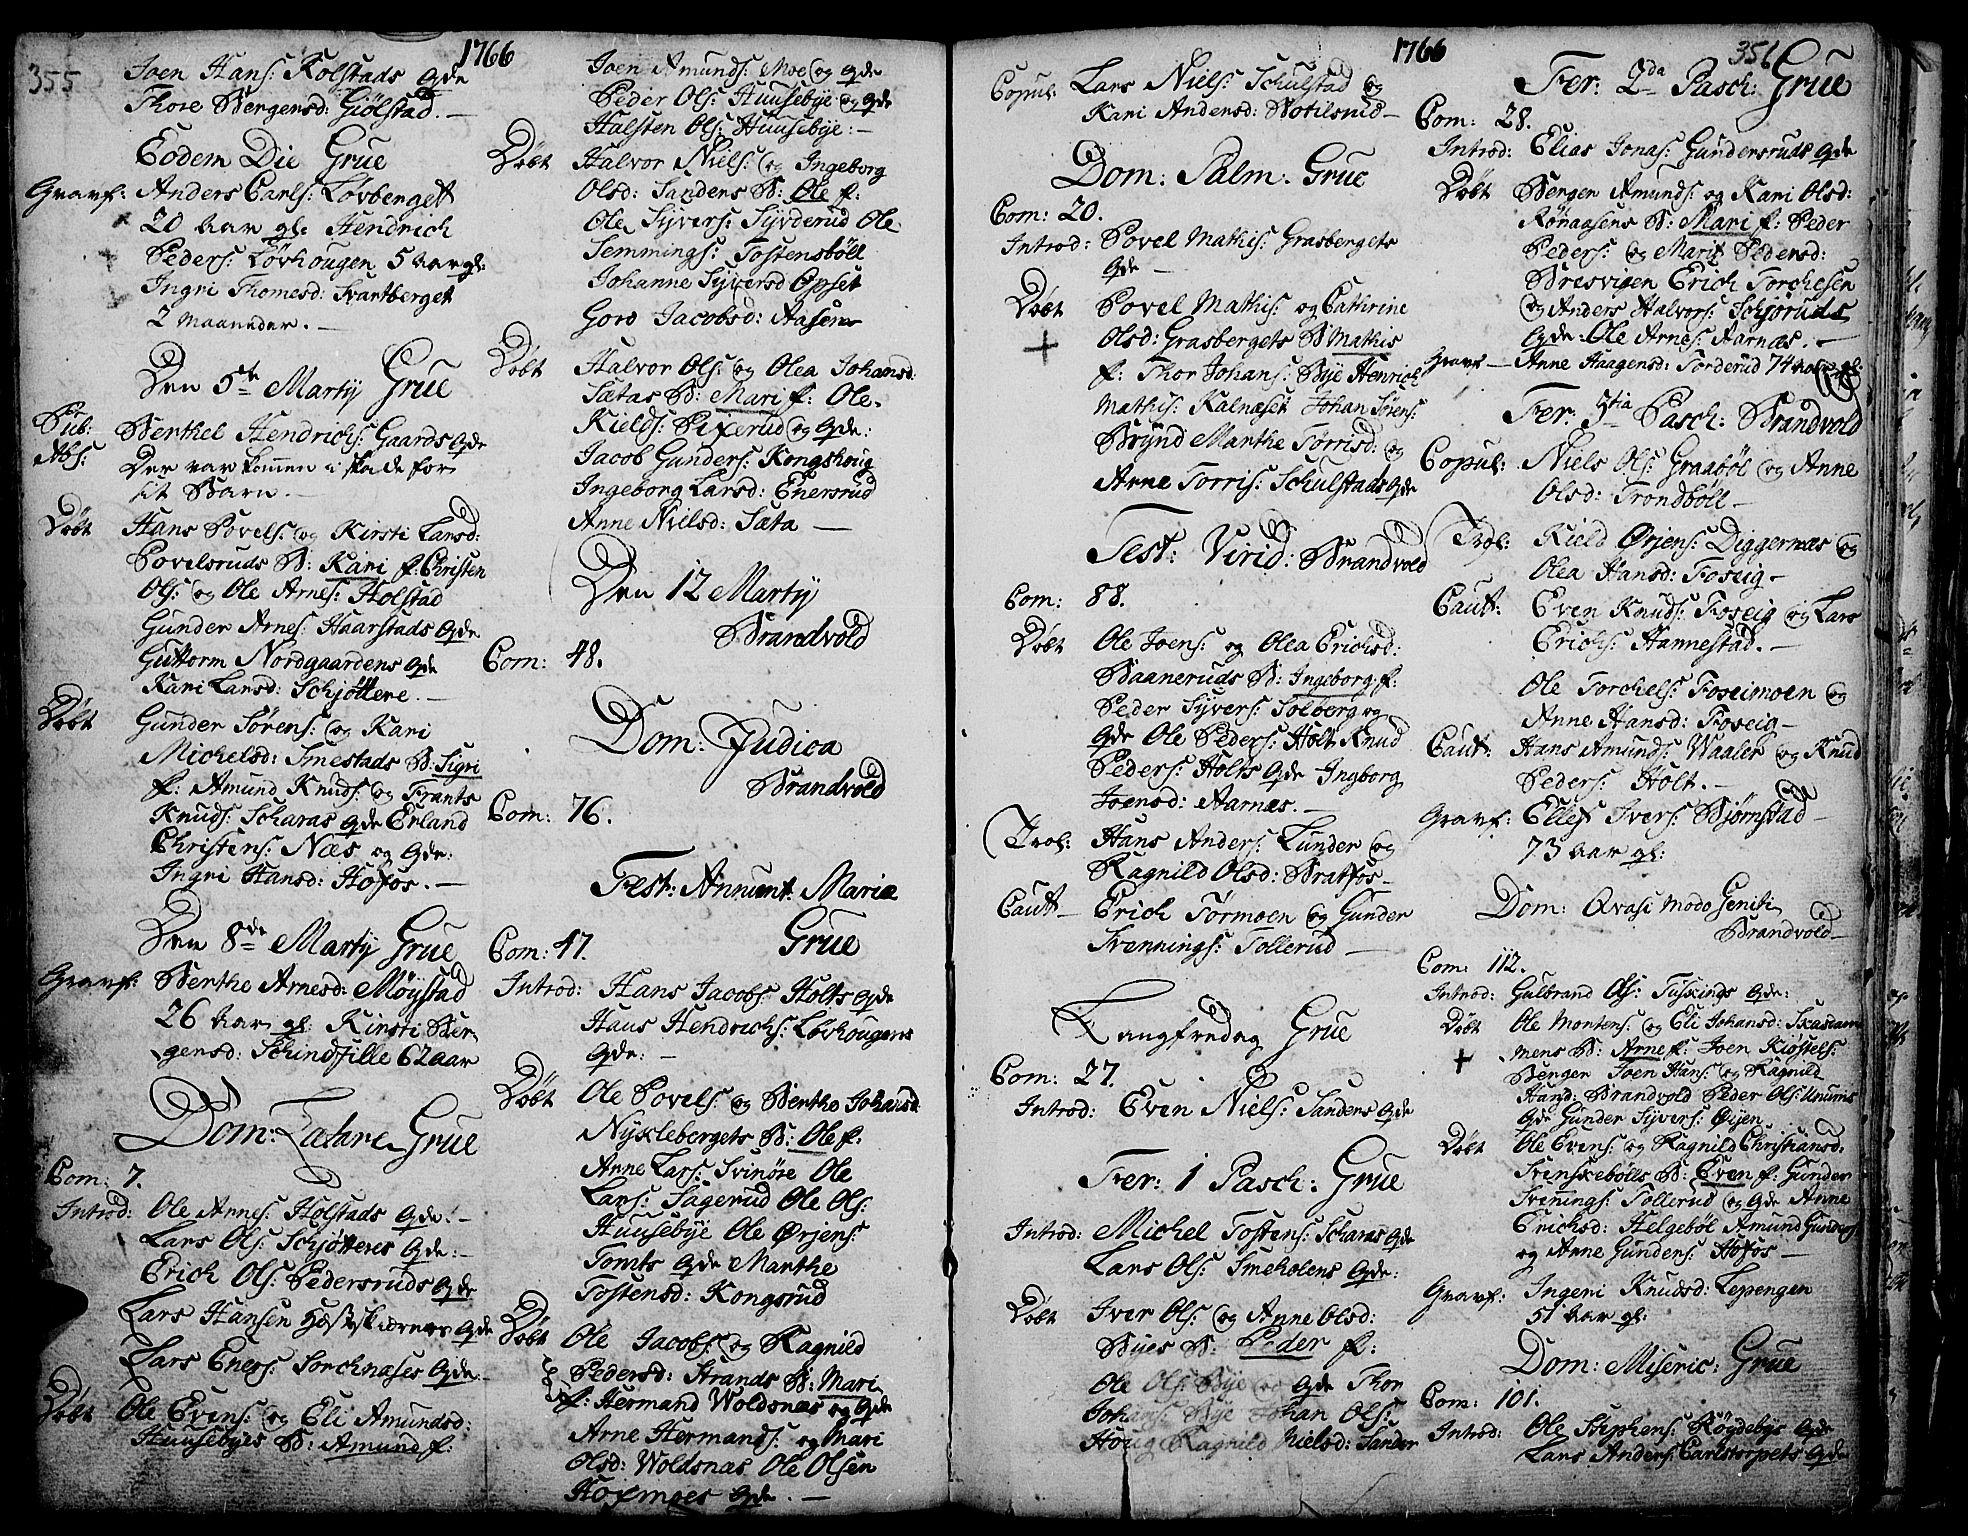 355
1766
Joen Hans: Kolstads qde
Thore Bergensd: Giölstad. —
Eodem Die Grue
Gravf: Anders Carls: Lövberget
20 Aar gl: Hendrich
Peders: Lövhougen 5 Aar gl:
Ingri Thomesd: Svartberget
2 Maaneder. —
Den 5te Martij Grue
Pub: Abs: Berthel Hendrichs: Gaards qde
Der var kommen i skade for
sit Barn. —
Döbt Hans Povels: og Kirsti Larsd:
Povelsruds B: Kari f: Christen
Ols: og Ole Arnes: Holstad
Gunder Arnes: Haarstads qde
Guttorm Nordgaardens qde
Kari Larsd: Schjöttere —
Döbt Gunder Sörens: og Kari
Michelsd: Smestads B: Sigri
f: Amund Knuds: og Frants
Knuds: Scharas qde Erland
Christens: Næs og qde:
Ingri Hansd: Hofos. —
Den 8de Martij Grue
Gravf: Berthe Arnesd: Möystad
26 Aar gl: Kirsti Ber-
gensd: Schindfille 62 aar
Dom: Lætare Grue
Com: 7.
Introd: Ole Arnes: Holstads qde: —
Lars Ols: Schjötteres qde: —
Erich Ols: Pedersruds qde
Lars Hansen qde
Lars Eners: Sorchnæses qde
Döbt Ole Evens: og Eli Amundsd:
Huusebyes B: Amund f:
Joen Amunds: Moe og qde
Peder Ols: Huusebye og qde
Halsten Ols: Huusebye: —
Döbt Halvor Niels: og Ingeborg
Olsd: Sandens B: Ole f:
Ole Syvers: Syvderud Ole
Semmings: Tostensböll
Johanne Syversd Opset
Goro Jacobsd: Aasen
Döbt Halvor Ols: og Olea Johansd:
Sætas B: Mari f: Ole
Kields: Pixerud og qde:
Jacob Gunders: Kongshoug
Ingeborg Larsd: Enersrud
Anne Nielsd: Sæta —
Den 12 Martij
Brandvold
Com: 48.
Dom: Judica
Brandvold
Com: 76.
Fest: Annunt: Mariæ
Grue
Com: 47.
Introd: Hans Jacobs: Holts qde
Hans Hendrichs: Lövhougens
qde: —
Döbt Ole Povels: og Berthe Johansd
Nyklebergets B: Ole f:
Anne Lars: Svinöre Ole
Lars: Sagerud Ole Ols:
Huusebye Ole Örjens:
Tomts qde Marthe
Tostensd: Kongsrud
Döbt Ole Jacobs: og Ragnild
Pedersd: Strands B: Mari
f: Hermand Woldsnæs og qde
Arne Hermands: og Mari
Olsd: Woldsnæs Ole Olsen
Kofmoes qde. —
1766
356
Copul: Lars Niels: Schulstad og
Kari Andersd: Notilsrud —
Dom: Palm: Grue
Com: 20.
Introd: Povel Mathis: Grasbergets
qde —
Döbt Povel Mathis: og Cathrine
Olsd: Grasbergets B Mathis
f: Thor Johans: Bye Henrich
Mathis: Kalnæset Johan Sörens:
Brÿnd Marthe Torrisd: og
Arne Torris: Schulstads qde
Fest: Virid: Brandvold
Com: 88.
Döbt Ole Joens: og Olea Erichsd:
Baaneruds B: Ingeborg f:
Peder Syvers: Solberg og
qde Ole Peders: Holt Knud
Peders: Holts qde Ingborg
Joensd: Aarnæs. —
Trol: Hans Anders: Lunder og
Ragnild Olsd: Bratfos —
Caut — Erich Törmoen og Gunder
Svennings: Tollerud —
Langfredag Grue
Com: 27.
Introd: Even Niels: Sandens qde
Fer: 1 Pasch: Grue
Introd: Michel Tostens: Scharas qde
Lars Ols: Smeholens qde:
Döbt Iver Ols: og Anne Olsd:
Byes B: Peder f:
Ole Ols: Bye og qde Thor
Johans: Bye Johan Ols:
Houg Ragnild Nielsd: Sander
Fer: 2da Pasch: Grue
Com: 28.
Introd: Elias Jonas: Gundersruds qde
Döbt Bergen Amunds: og Kari Olsd:
Rönaasens B: Mari f: Peder
Peders: og Marit Pedersd:
Bresvigen Erich Torchesen
og Anders Halvors: Schjöruds
qde Ole Arnes: Aarnæs. —
Gravf — Anne Haagensd: Torderud 74 Aar gl:
Fer: 3tia Pasch: Brandvold
Copul: Niels Ols: Graaböl og Anne
Olsd: Trondböll —
Trol: Kield Örjens: Diggernæs og
Olea Hansd: Foseig —
Caut: Even Knuds: Foseig og Lars
Erichs: Hannestad. —
Ole Torchels: Foseimoen og
Anne Hansd: Foseig —
Caut: Hans Amunds: Waaler og Knud
Peders: Holt. —
Gravf: Ellef Ivers: Björnstad —
73 Aar gl:
Dom: Qvasi modo Geniti
Brandvold —
Com: 112.
Introd: Gulbrand Ols: Tuskings qde:
Döbt Ole Mortens: og Eli Johansd: Skasdam-
mens B: Arne f: Joen Kiöstels:
Bergen Joen Hans: og Ragnild
Hansd: Brandvold Peder Ols: Knums
qde Gunder Syvers: Örjen
Döbt Ole Evens: og Ragnild Christiansd:
Svenskebölls B: Even f: Gunder
Svennings: Tollerud og qde Anne
Erichsd: Helgeböl Amund Gunders
og Anne Gunders: Hofos —
Gravf: Ingeri Knudsd: Lepengen
51 Aar gl:
Dom: Miseric: Grue
Com: 101.
Introd: Ole Stephens: Röydebys qde
Lars Anders: Carlstorpets qde